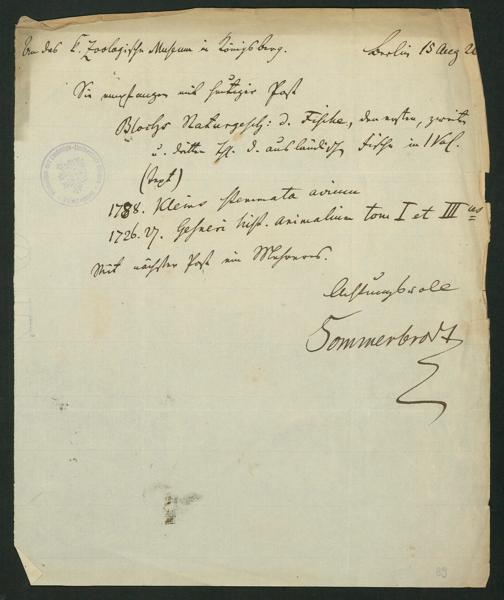 An das K. Zoologische Museum in Königsberg.
Berlin 15 Aug 2
Sie empfangen mit heutiger Post
Blochs Naturgesch: d. Fische, den ersten, zweiten
u. dritten Th. d. ausländisch Fische in 1 Vol.
(Text)
1788. Kleins stemmata avium
1726. 27. Gesneri hist. Animalium tom I et III
Mit nächster Post ein Mehreres.
Achtungsvoll
Sommerbrodt
89